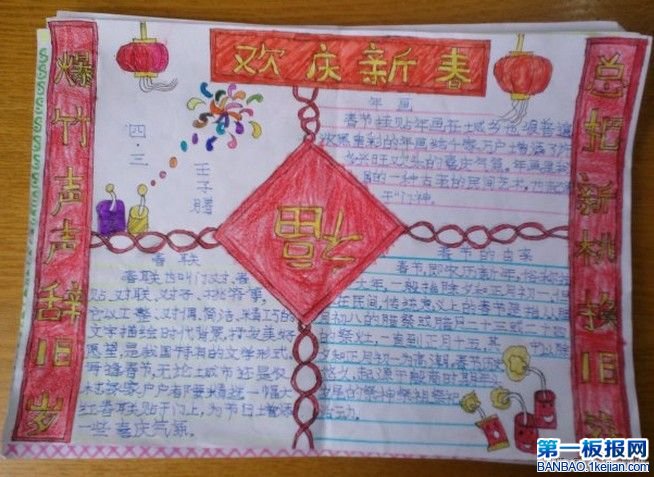 欢庆新春
爆竹声声辞旧岁
总把新桃换旧
四.三
王子腾
福
年画
春节挂贴年画在城乡也很普遍
的一种古老的民间艺术
门神。
春联
春联也叫门对、春
贴、对联、对子、桃符等,
它以工整、对偶、简洁、精巧的
文字描绘时代背景,抒发美好
愿望,是我国特有的文学形式。
每逢春节,无论城市还是农
村,家家户户都要精选一幅大
红春联贴于门上,为节日增添
些喜庆气氛。
春节的由来
春节,即农历新年,俗称
年,一般指除夕和正月初一。
在民间,传统意义上的春节是指从腊
初八的腊祭或腊月二十三或二十四
祭灶,一直到正月十五,其中以除
夕和正月初一为高潮。春节历史
悠久,起源于殷商时期年
尾的祭神祭祖
活动。
第一板报网
BANBAO.1kejian.com